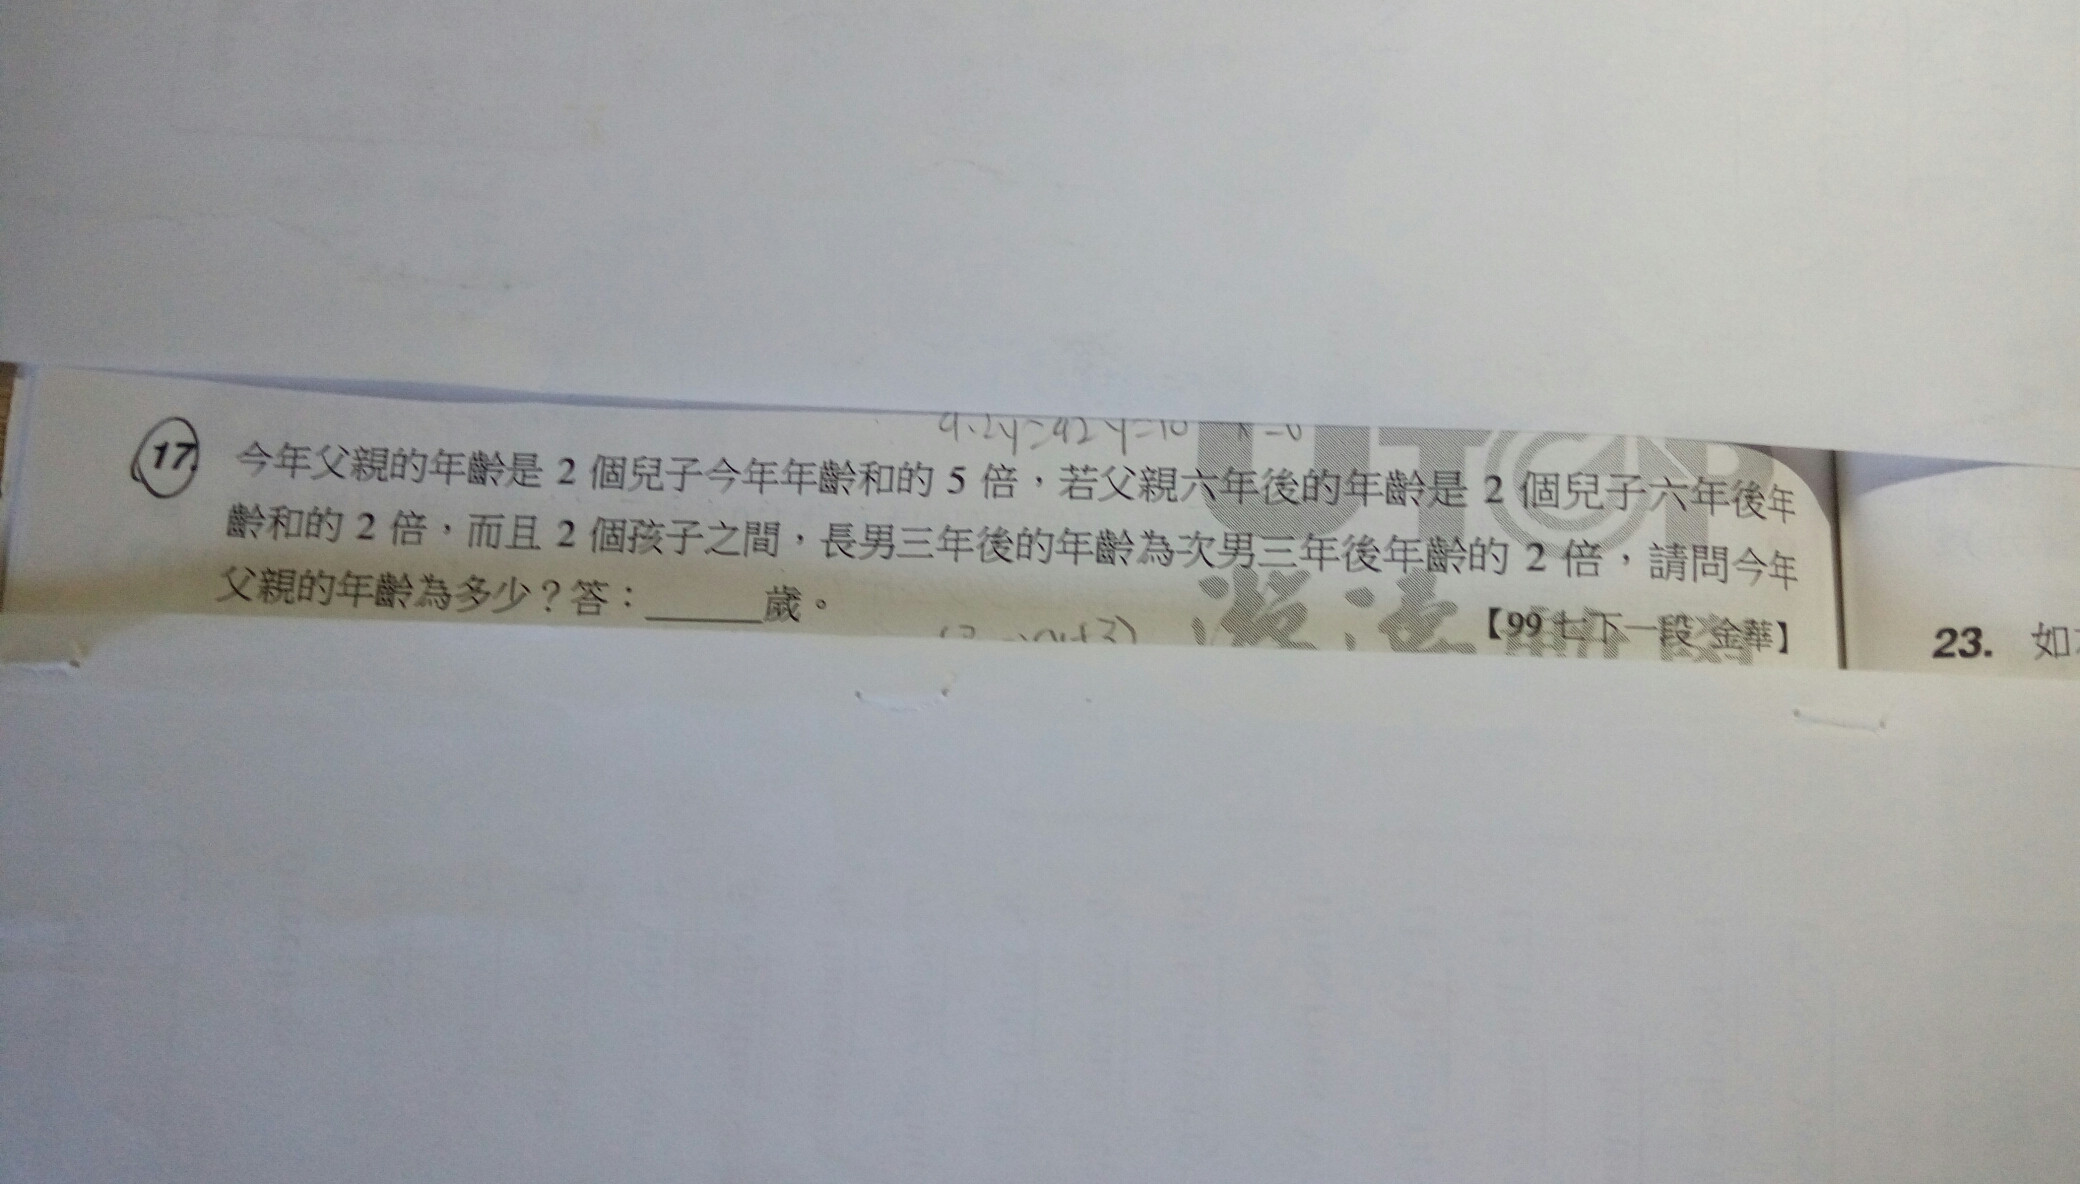 17. 今年父親的年齡是 2 個兒子今年年齡和的 5 倍，若父親六年後的年齡是 2 個兒子六年後年
齡和的 2 倍，而且 2 個孩子之間，長男三年後的年齡為次男三年後年齡的 2 倍，請問今年
父親的年齡為多少？答：______歲。
【99 七下一段 金華】
23. 如